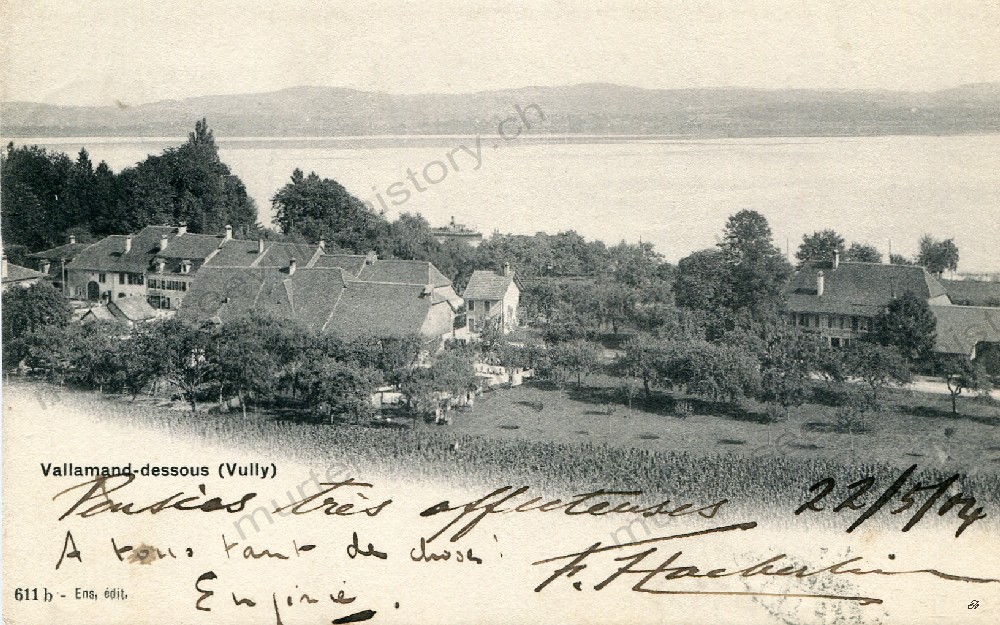 murtenhistory.ch
Vallamand-dessous (Vully)
Pensées très affectueuses 22/5/04
A vous tant de choses!
F. Haeberlin
Eugénie.
611 b - Ens, édit.